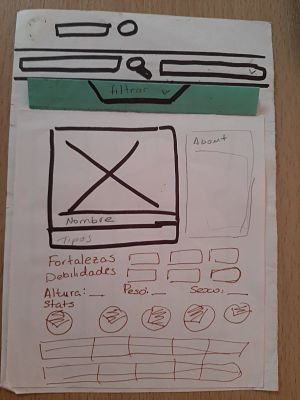 filtrar
About
Nombre
Tipos
Fortalezas
Debilidades
Altura: Peso: Sexo:
Stats